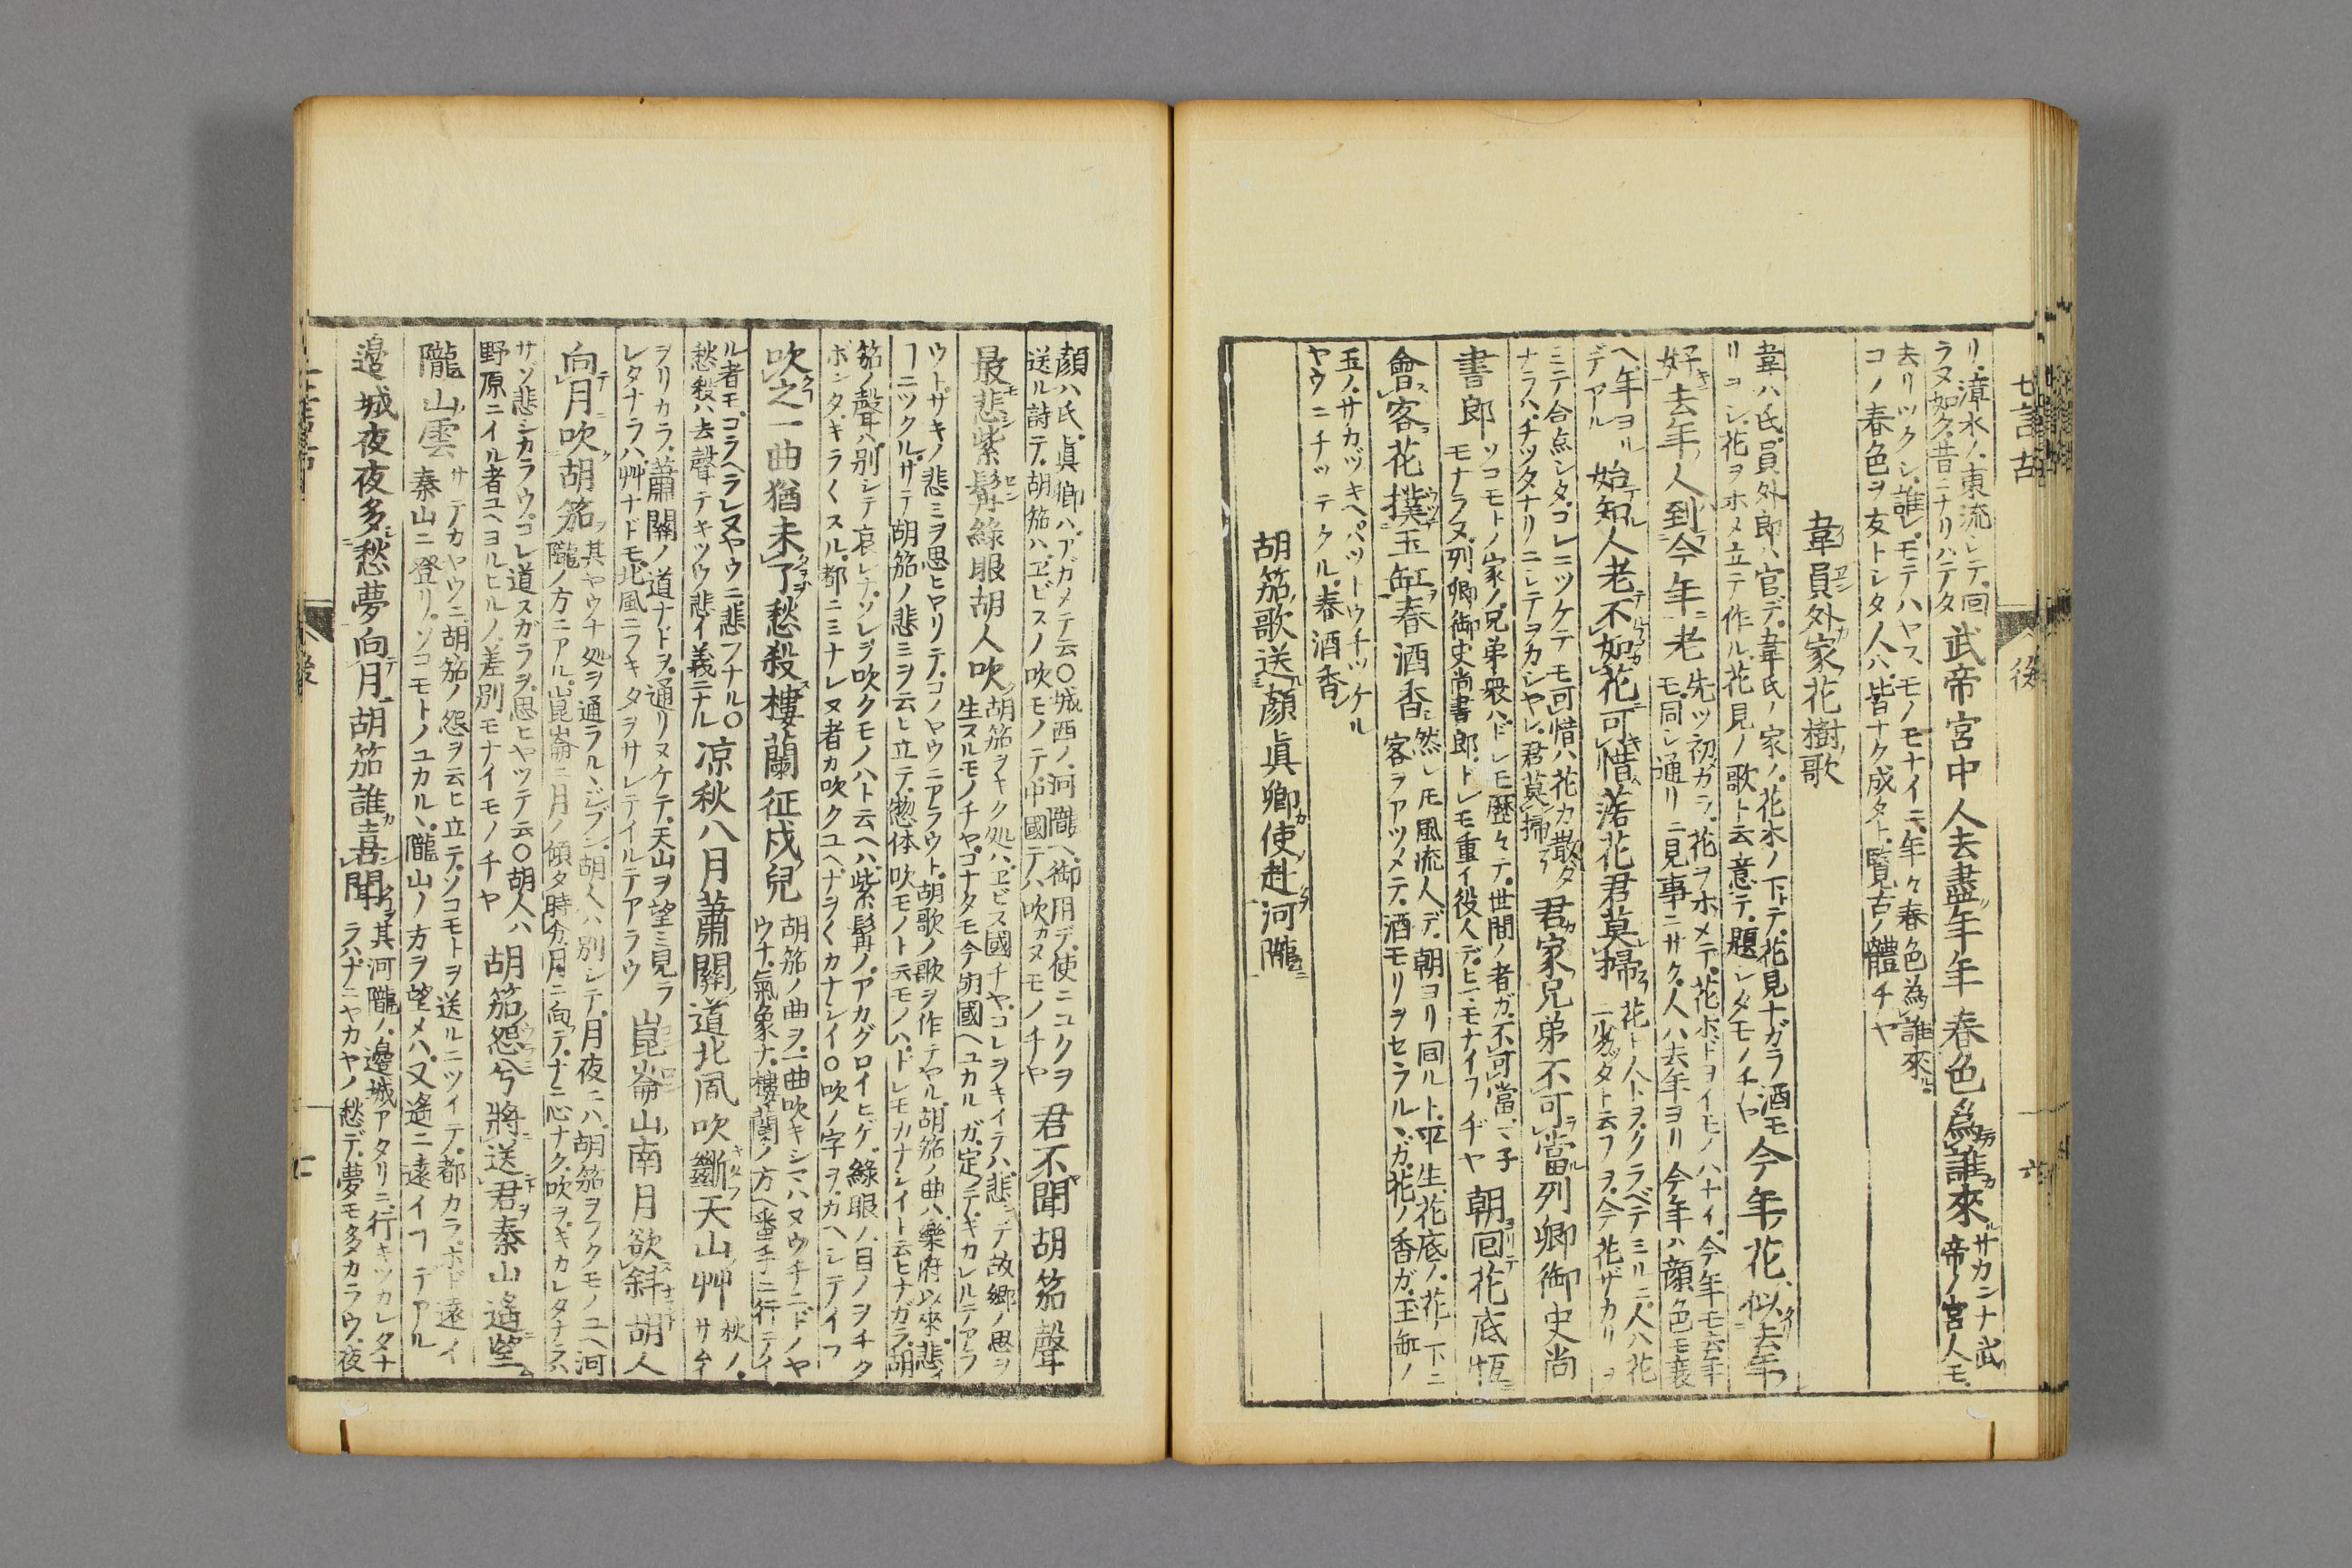 七言古
後
六
リ漳水ノ東流シテ回
ラヌ如ク昔ニナリハテタ
武帝宮中人去盡年年春色爲誰來
サカンナ武
帝ノ宮人モ
去リツクシ誰レモテハヤスモノモナイニ年々春色為誰來
コノ春色ヲ友トシタ人ハ皆ナク成タト覧古ノ體チヤ
韋員外家花樹歌
韋ハ氏員外郎ハ官デ韋氏ノ家ノ花木ノ下テ花見ナガラ酒モ
リヨシ花ヲホメ立テ作ル花見ノ歌ト云意テ題シタモノチヤ
今年花似去年
好去年人到今年老
先ツ初ガラ花ヲホメテ花ホドヨイモノハナイ今年モ去年
モ同シ通リニ見事ニサク人ハ去年ヨリ今年ハ顔色モ衰
ヘ年ヨル
デアル
始知人老不如花可惜落花君莫掃
花ト人トヲクラベテミルニ人ハ花
ニ劣タト云フヲ今花ザカリヲ
ミテ合点シタコレニツケテモ可惜ハ花カ散タ
ナラハチツタナリニシテヲカシヤレ君莫掃
君家兄弟不可當列卿御史尚
書郎
ソコモトノ家ノ兄弟衆ハドレモ歴々テ世間ノ者ガ不可當ニ子
モナラヌ列卿御史尚書郎トレモ重イ役人デヒモナイフヂヤ
朝回花底恆
會客花撲玉缸春酒香
然レ𪜈風流人デ朝ヨリ同ルト平生花底ノ花ノ下ニ
客ヲアツメテ酒モリヲセラルヽガ花ノ香ガ玉缸ノ
玉ノサカヅキヘパツトウチツケル
ヤウニチツテクル春酒香
胡笳歌送顔眞卿使赴河隴
顔ハ氏眞卿ハアガメテ云○城西ノ河隴ヘ御用デ使ニユクヲ
送ル詩テ胡笳ハヱビスノ吹モノテ中國テハ吹カヌモノチヤ
君不聞胡笳聲
最悲紫髯綠眼胡人吹
胡笳ヲキク処ハヱビス國チヤコレヲキイテハ悲シデ故郷ノ思ヲ
生スルモノチヤゴナタモ今胡國ヘユカルガ定テキカレルテアラフ
ウトサキノ悲ミヲ思ヒヤリテコノヤウニアラウト胡歌ノ歌ヲ作テヤル胡笳ノ曲ハ樂府以來悲イ
ヿニツクルサテ胡笳ノ悲ミヲ云ヒ立テ惣体吹モノト云モノハドレモカナシイト云ヒナガラ胡
笳ノ聲ハ別シテ哀レナソレヲ吹クモノハト云ヘハ紫髯ノアカグロイヒゲ綠眼ノ目ノヲチク
ボンタギラくスル都ニミナレヌ者カ吹クユヘナヲくカナシイ○吹ノ字ヲカヘシテイフ
吹之一曲猶未了愁殺樓蘭征戍兒
胡笳ノ曲ヲ一曲吹キシマハヌウチニドノヤ
ウナ氣象ナ樓蘭ノ方ヘ番手ニ行テイ
ル者モコラヘラレヌヤウニ悲フナル○
愁殺ハ去聲テキツウ悲イ義ニナル
凉秋八月蕭關道北風吹斷天山艸
秋ノ
サムイ
ヲリカラ蕭關ノ道ナドヲ通リヌケテ天山ヲ望ミ見ラ
レタナラハ艸ナドモ北風ニフキタヲサレテイルテアラウ
崑崙山南月欲斜胡人
向月吹胡笳
其ヤウナ処ヲ通ラルヽジブン胡人ハ別シテ月夜ニハ胡笳ヲフクモノユヘ河
隴ノ方ニアル崑崙ニ月ノ傾タ時分月ニ向テナニ心ナク吹ヲキカレタナラハ
サソ悲シカラウコレ道スガラヲ思ヒヤツテ云○胡人ハ
野原ニイル者ユヘヨルヒルノ差別モナイモノチヤ
胡笳怨兮將送君秦山遙望
隴山雲
サテカヤウニ胡笳ノ怨ヲ云ヒ立テソコモトヲ送ルニツイテ都カラホド遠イ
秦山ニ登リソコモトノユカルヽ隴山ノ方ヲ望メハ又遙ニ遠イヿテアル
邉城夜夜多愁夢向月胡笳誰喜聞
其河隴ノ邉城アタリニ行キツカレタナ
ラハナニヤカヤノ愁デ夢モ多カラウ夜
後
七